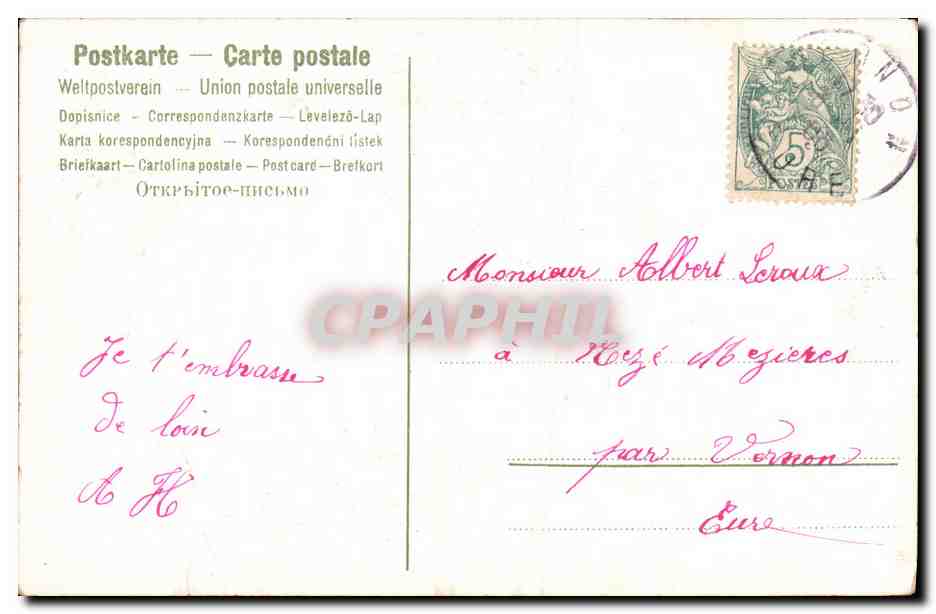 Postkarte — Carte postale
Weltpostverein — Union postale universelle
Dopisnice - Correspondenzkarte - Levelező-Lap
Karta korespondencyjna - Korespondenční listek
Briefkaart - Cartolina postale - Post card - Brefkort
Открытое-письмо
5c
POSTES
Monsieur Albert Leroux
CPAPHIL
à Hezé Mezieres
par Vernon
Eure
Je t'embrasse
de loin
A H